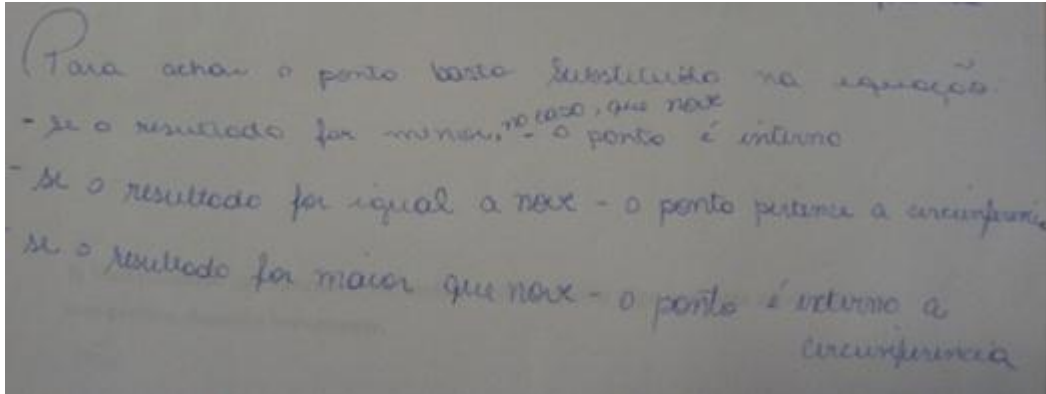 Para achar o ponto basta substituilo na equação.
- se o resultado for menor, no caso, que nove - o ponto é interno
- se o resultado for igual a nove - o ponto pertence a circunferenci
- se o resultado for maior que nove - o ponto é externo a
circunferencia